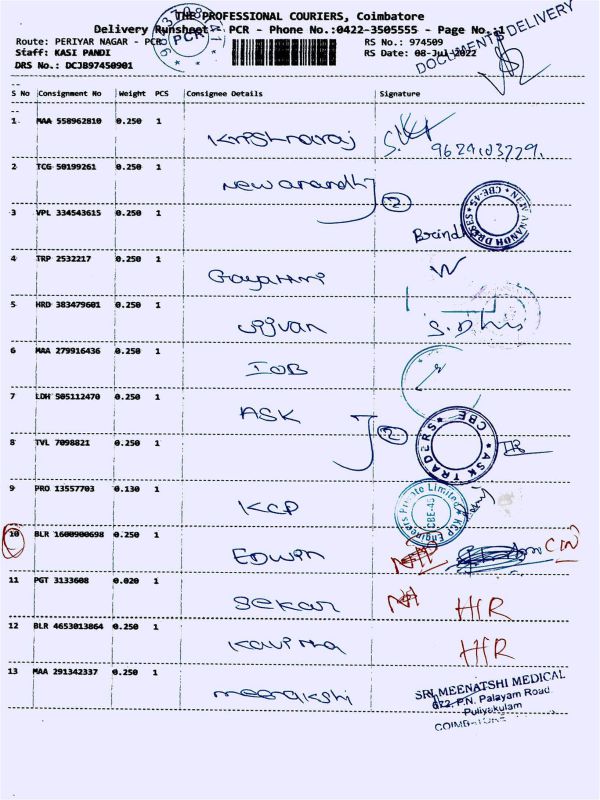 THE PROFESSIONAL COURIERS, Coimbatore
Delivery Runsheet - PCR - Phone No.:0422-3505555 - Page No.:1
Route: PERIYAR NAGAR - PCR
RS No.: 974509
Staff: KASI PANDI
RS Date: 08-Jul-2022
DRS No.: DCJB97450901
PCR
DOCUMENTS DELIVERY
S No Consignment No Weight PCS Consignee Details Signature
1 MAA 558962810 0.250 1 Krishnaraj
9629103729
2 TCG 50199261 0.250 1 New anandh
2
3 VPL 334543615 0.250 1
ANANDH DRESSES CBE-45
4 TRP 2532217 0.250 1 Gayathri
5 HRD 383479601 0.250 1 ujjvan
6 MAA 279916436 0.250 1 IOB
7 LDH 505112470 0.250 1 ASK
2
ASK TRADERS CBE
8 TVL 7098821 0.250 1
9 PRO 13557703 0.130 1 KCP
KCP Engineers Private Limited CBE-45
10 BLR 1600900698 0.250 1 Edwin
11 PGT 3133608 0.020 1 Sekar
12 BLR 4653013864 0.250 1 Kavitha
13 MAA 291342337 0.250 1 meenakshi
SRI MEENATSHI MEDICAL
672, P.N. Palayam Road
Puliyakulam
COIMBATORE